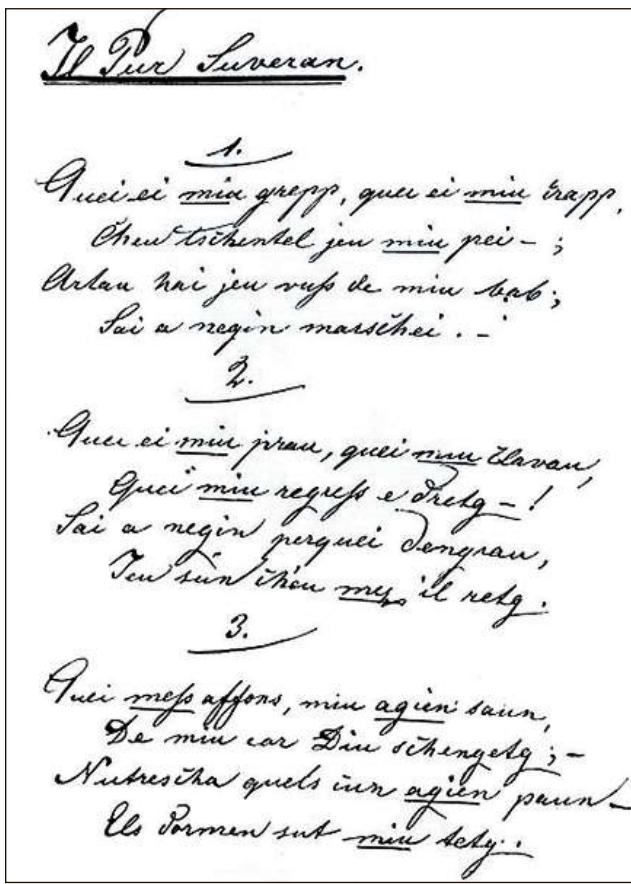 Il Pur Suveran.
1.
Quei ei miu grepp, quei ei miu crapp,
Cheu tschentel jeu miu pei - ;
Artau hai jeu vuss de miu bab;
Sai a negin marschei. -
2.
Quei ei miu prau, quei miu clavau,
Quei miu regress e dretg - !
Sai a negin perquei dengrau,
Jeu sun cheu mez il retg.
3.
Quei mess affons, miu agien saun,
De miu car Diu schengetg ; -
Nutrescha quels cun agien paun -
Els dorman sut miu tetg.